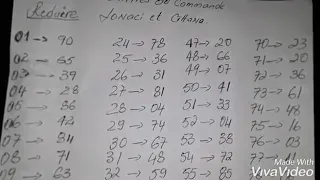 de Commande
Reduire Lonaci et Ghana.
01 → 90 24 → 78 47 → 20 70 → 23
02 → 65 25 → 36 48 → 66 71 → 20
03 → 39 26 → 27 49 → 07 72 → 36
04 → 28 27 → 81 50 → 41 73 → 61
05 → 86 28 → 04 51 → 33 74 → 48
06 → 42 29 → 74 52 → 04 75 → 16
07 → 34 30 → 67 53 → 38 76 → 03
08 → 71 31 → 48 54 → 72 77
09 → 63 32 → 59 55 → 85
Made With
VivaVideo